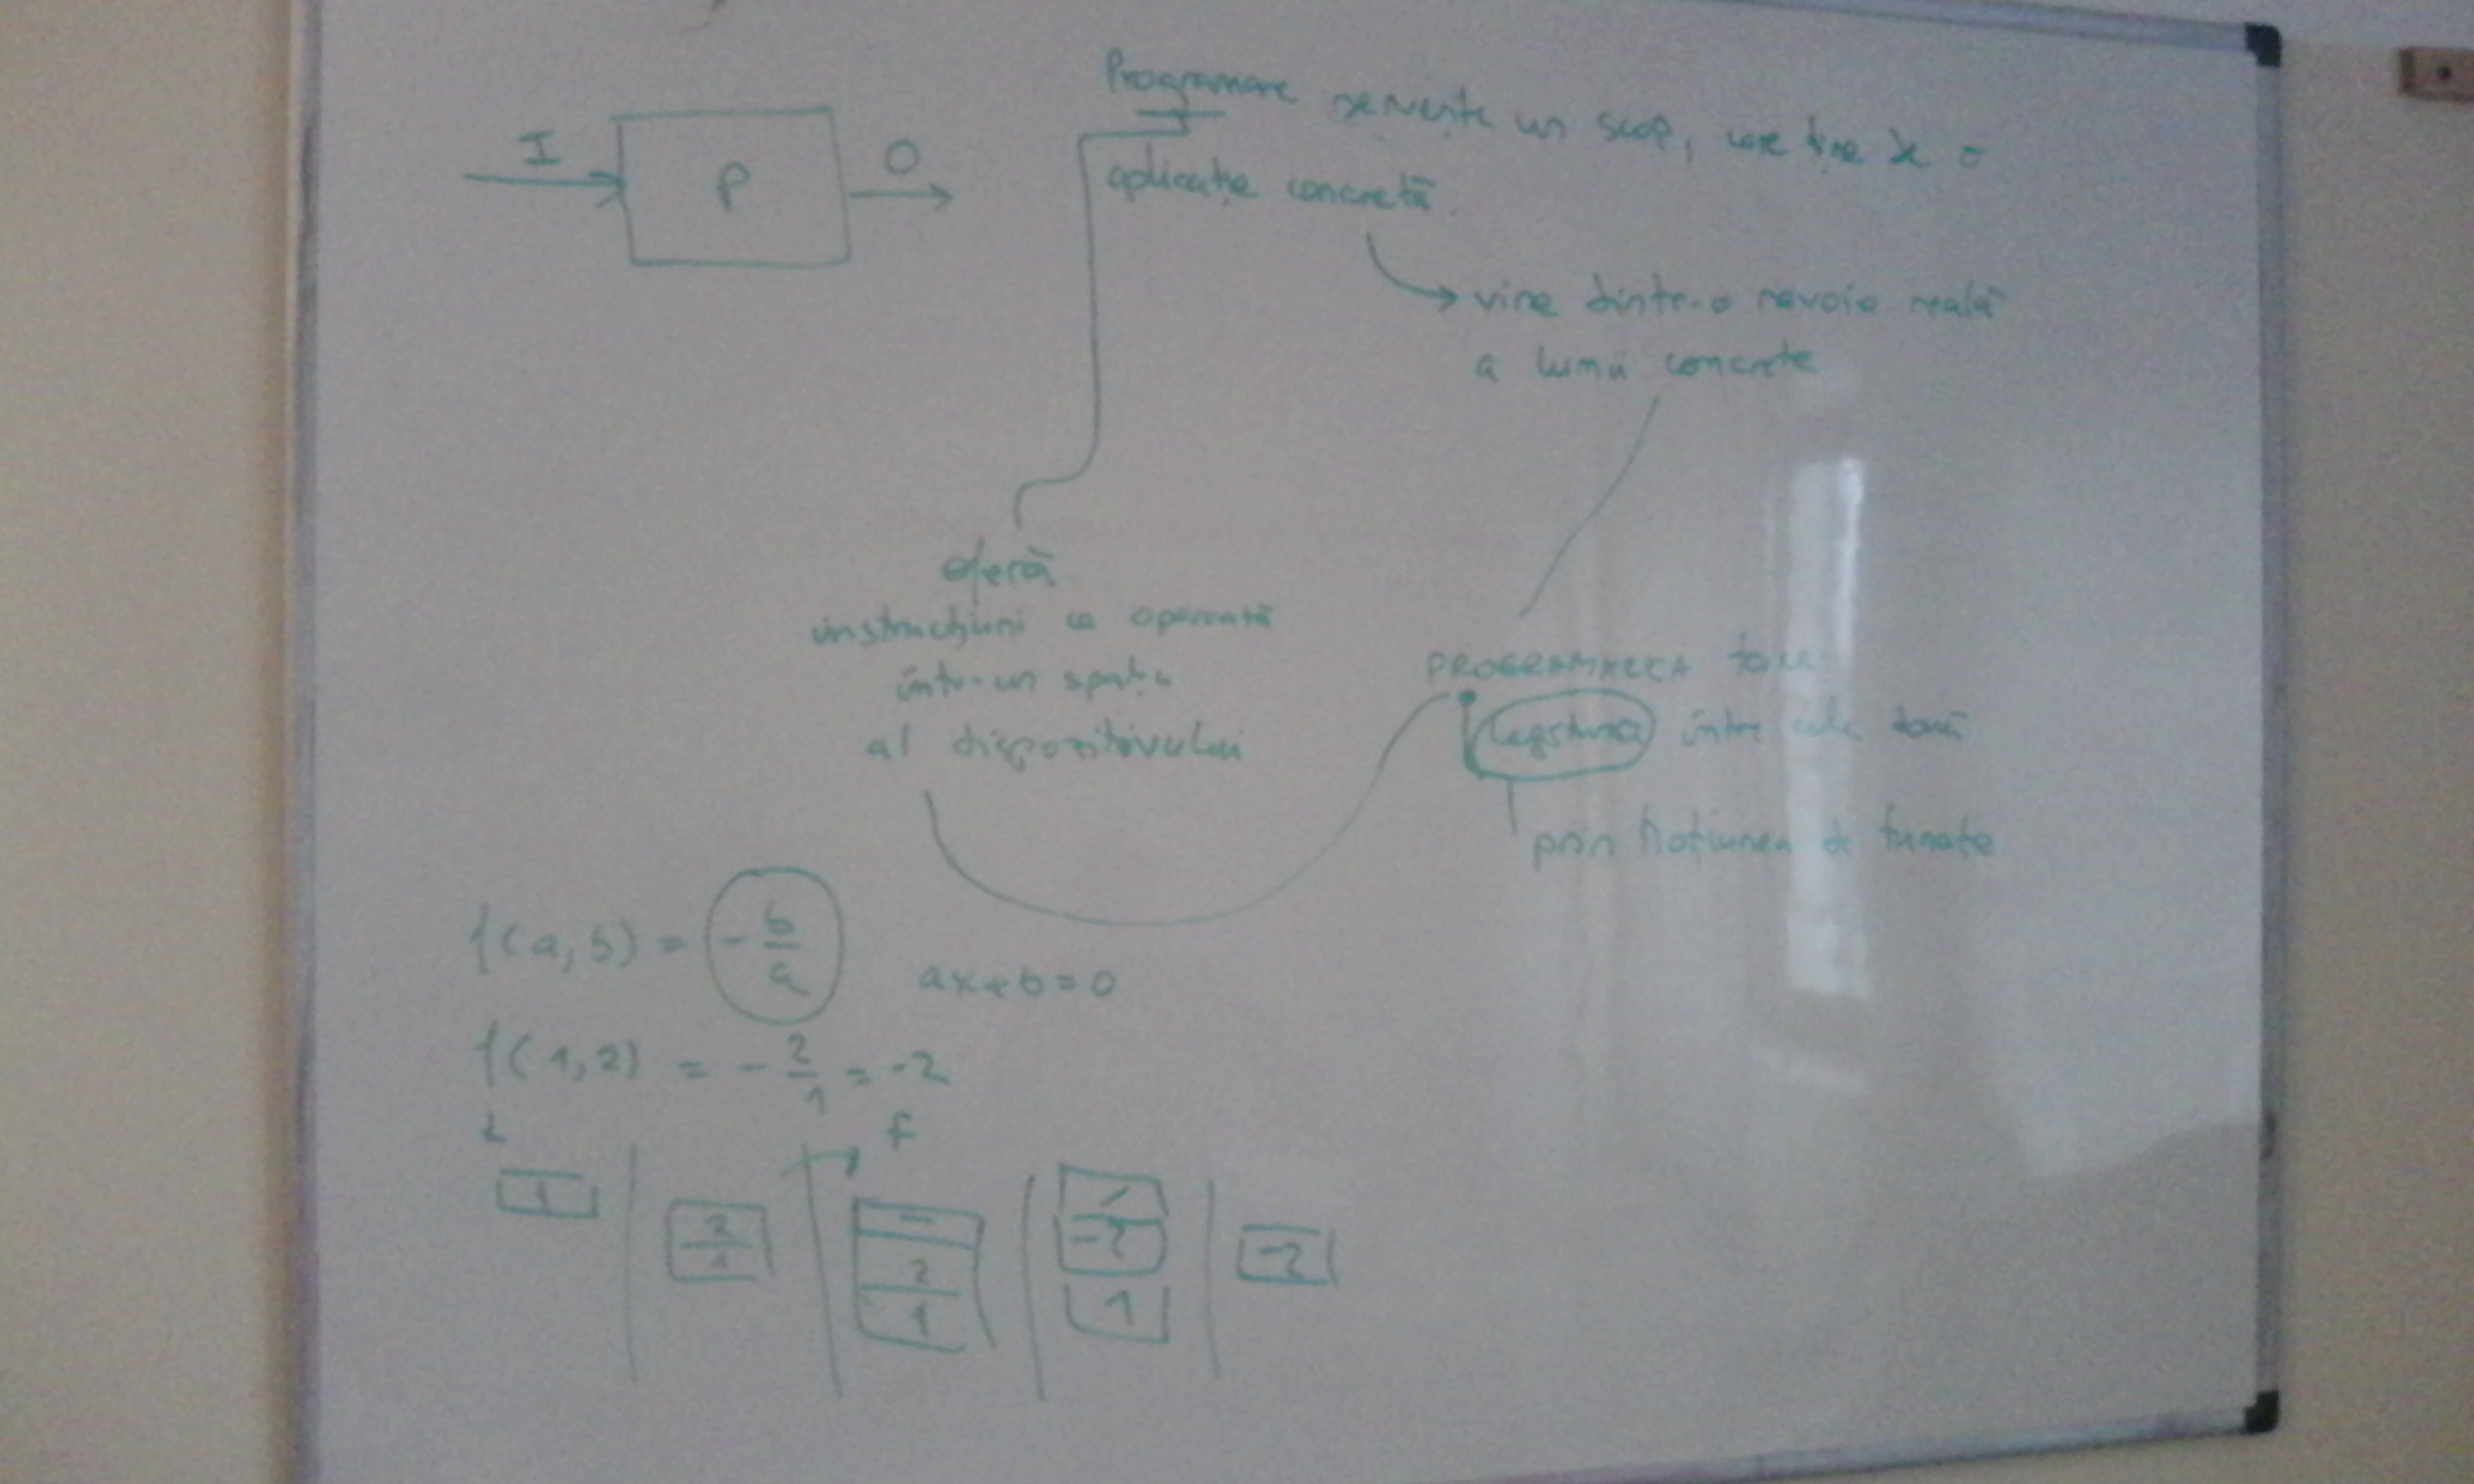 I
P
O
Programare servește un scop, care ține de o
aplicație concretă.
vine dintr-o nevoie reală
a lumii concrete
oferă
instrucțiuni ce operează
într-un spațiu
al dispozitivului
PROGRAMAREA face
legătura între cele două
prin noțiunea de
f(a,b) = -b/a
ax+b=0
f(1,2) = -2/1 = -2
F
1
2
1
-
2
1
/
-2
1
-2